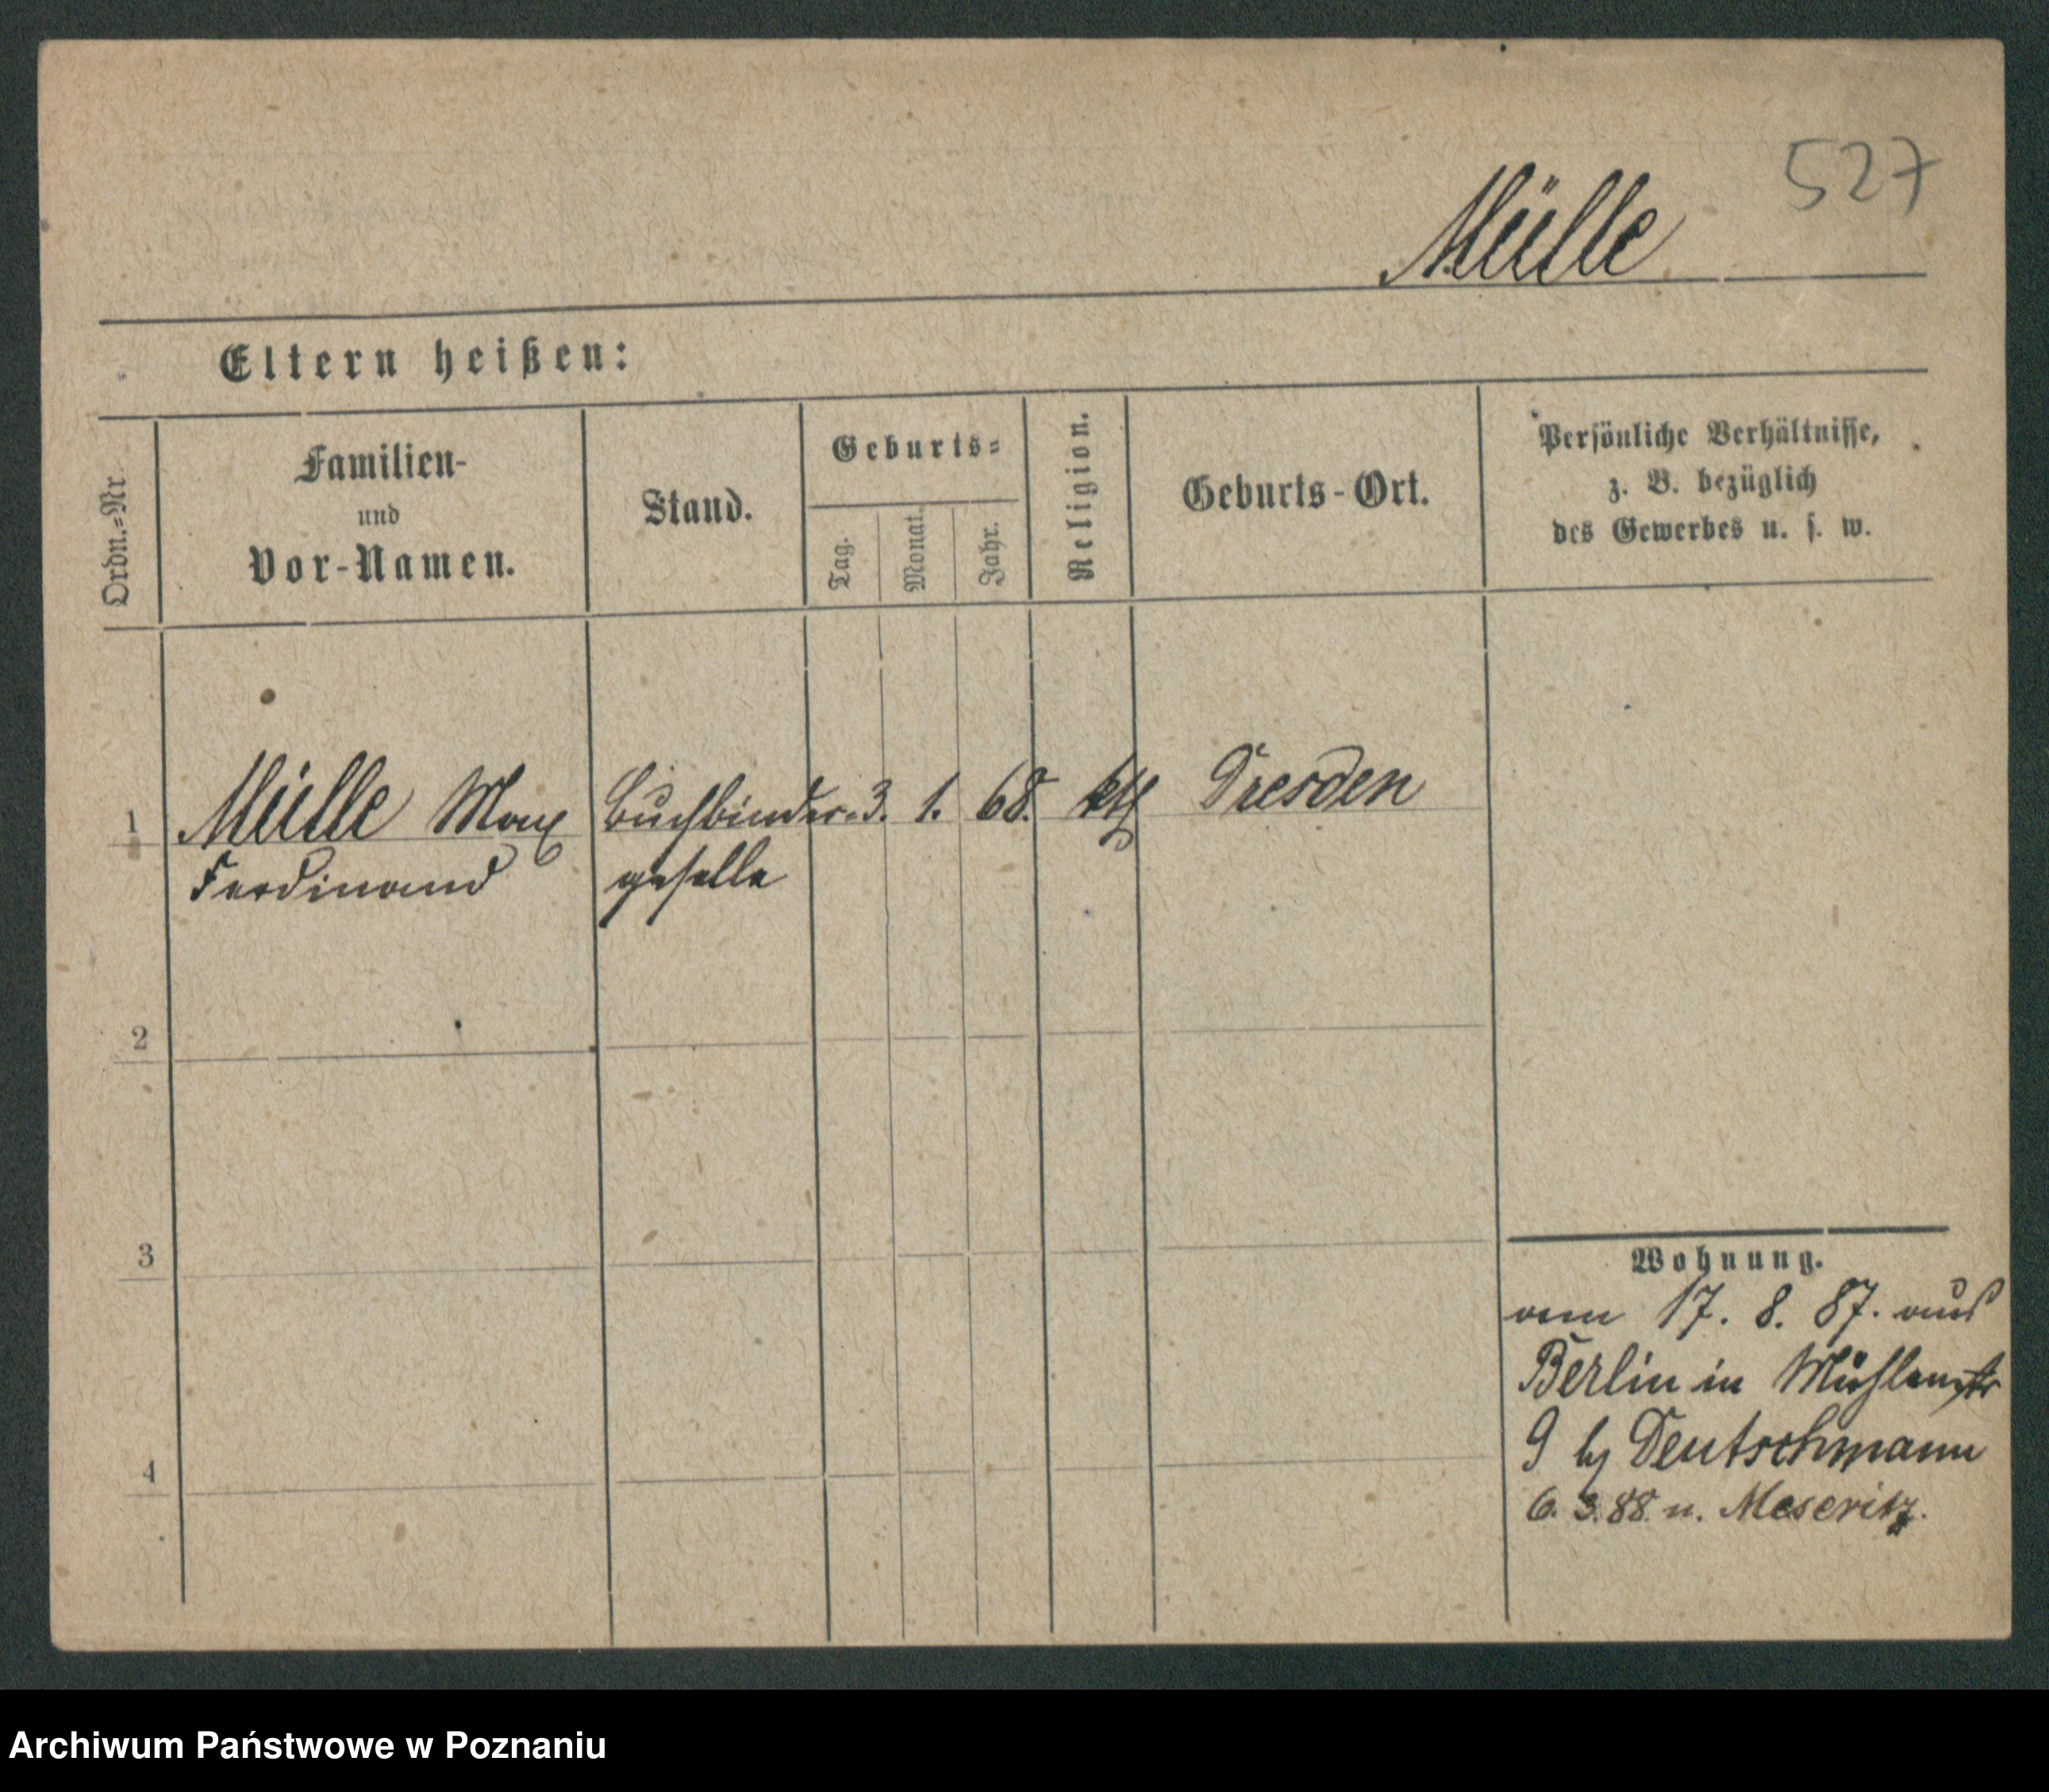 527
Mülle
Eltern heißen:
Ordn.=Nr
Familien-
und
Vor-Namen.
Stand.
Geburts=
Tag.
Monat.
Jahr.
Religion.
Geburts-Ort.
Persönliche Verhältnisse,
z. B. bezüglich
des Gewerbes u. s. w.
1 Mülle Max Buchbinder- 3. 1. 68. kth Dresden
Ferdinand geselle
2
3
Wohnung.
17. 8. 87. aus
Berlin in Mühlenstr
9 by Deutschmann
4
6. 3. 88. n. Meseritz.
Archiwum Państwowe w Poznaniu